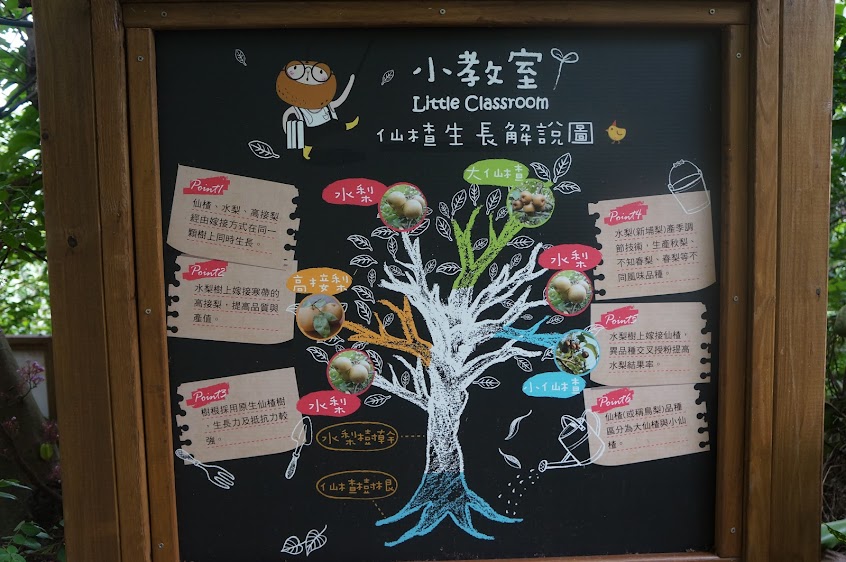 小教室
Little Classroom
仙楂生長解說圖
Point1
仙楂、水梨、高接梨
經由嫁接方式在同一
顆樹上同時生長。
Point2
水梨樹上嫁接寒帶的
高接梨，提高品質與
產值。
Point3
樹根採用原生仙楂樹
生長力及抵抗力較
強。
水梨
大仙楂
水梨
高接梨
水梨
小仙楂
水梨樹幹
仙楂樹根
Point4
水梨(新埔梨)產季調
節技術，生產秋梨、
不知春梨、春梨等不
同風味品種。
Point5
水梨樹上嫁接仙楂，
異品種交叉授粉提高
水梨結果率。
Point6
仙楂(或稱鳥梨)品種
區分為大仙楂與小仙
楂。